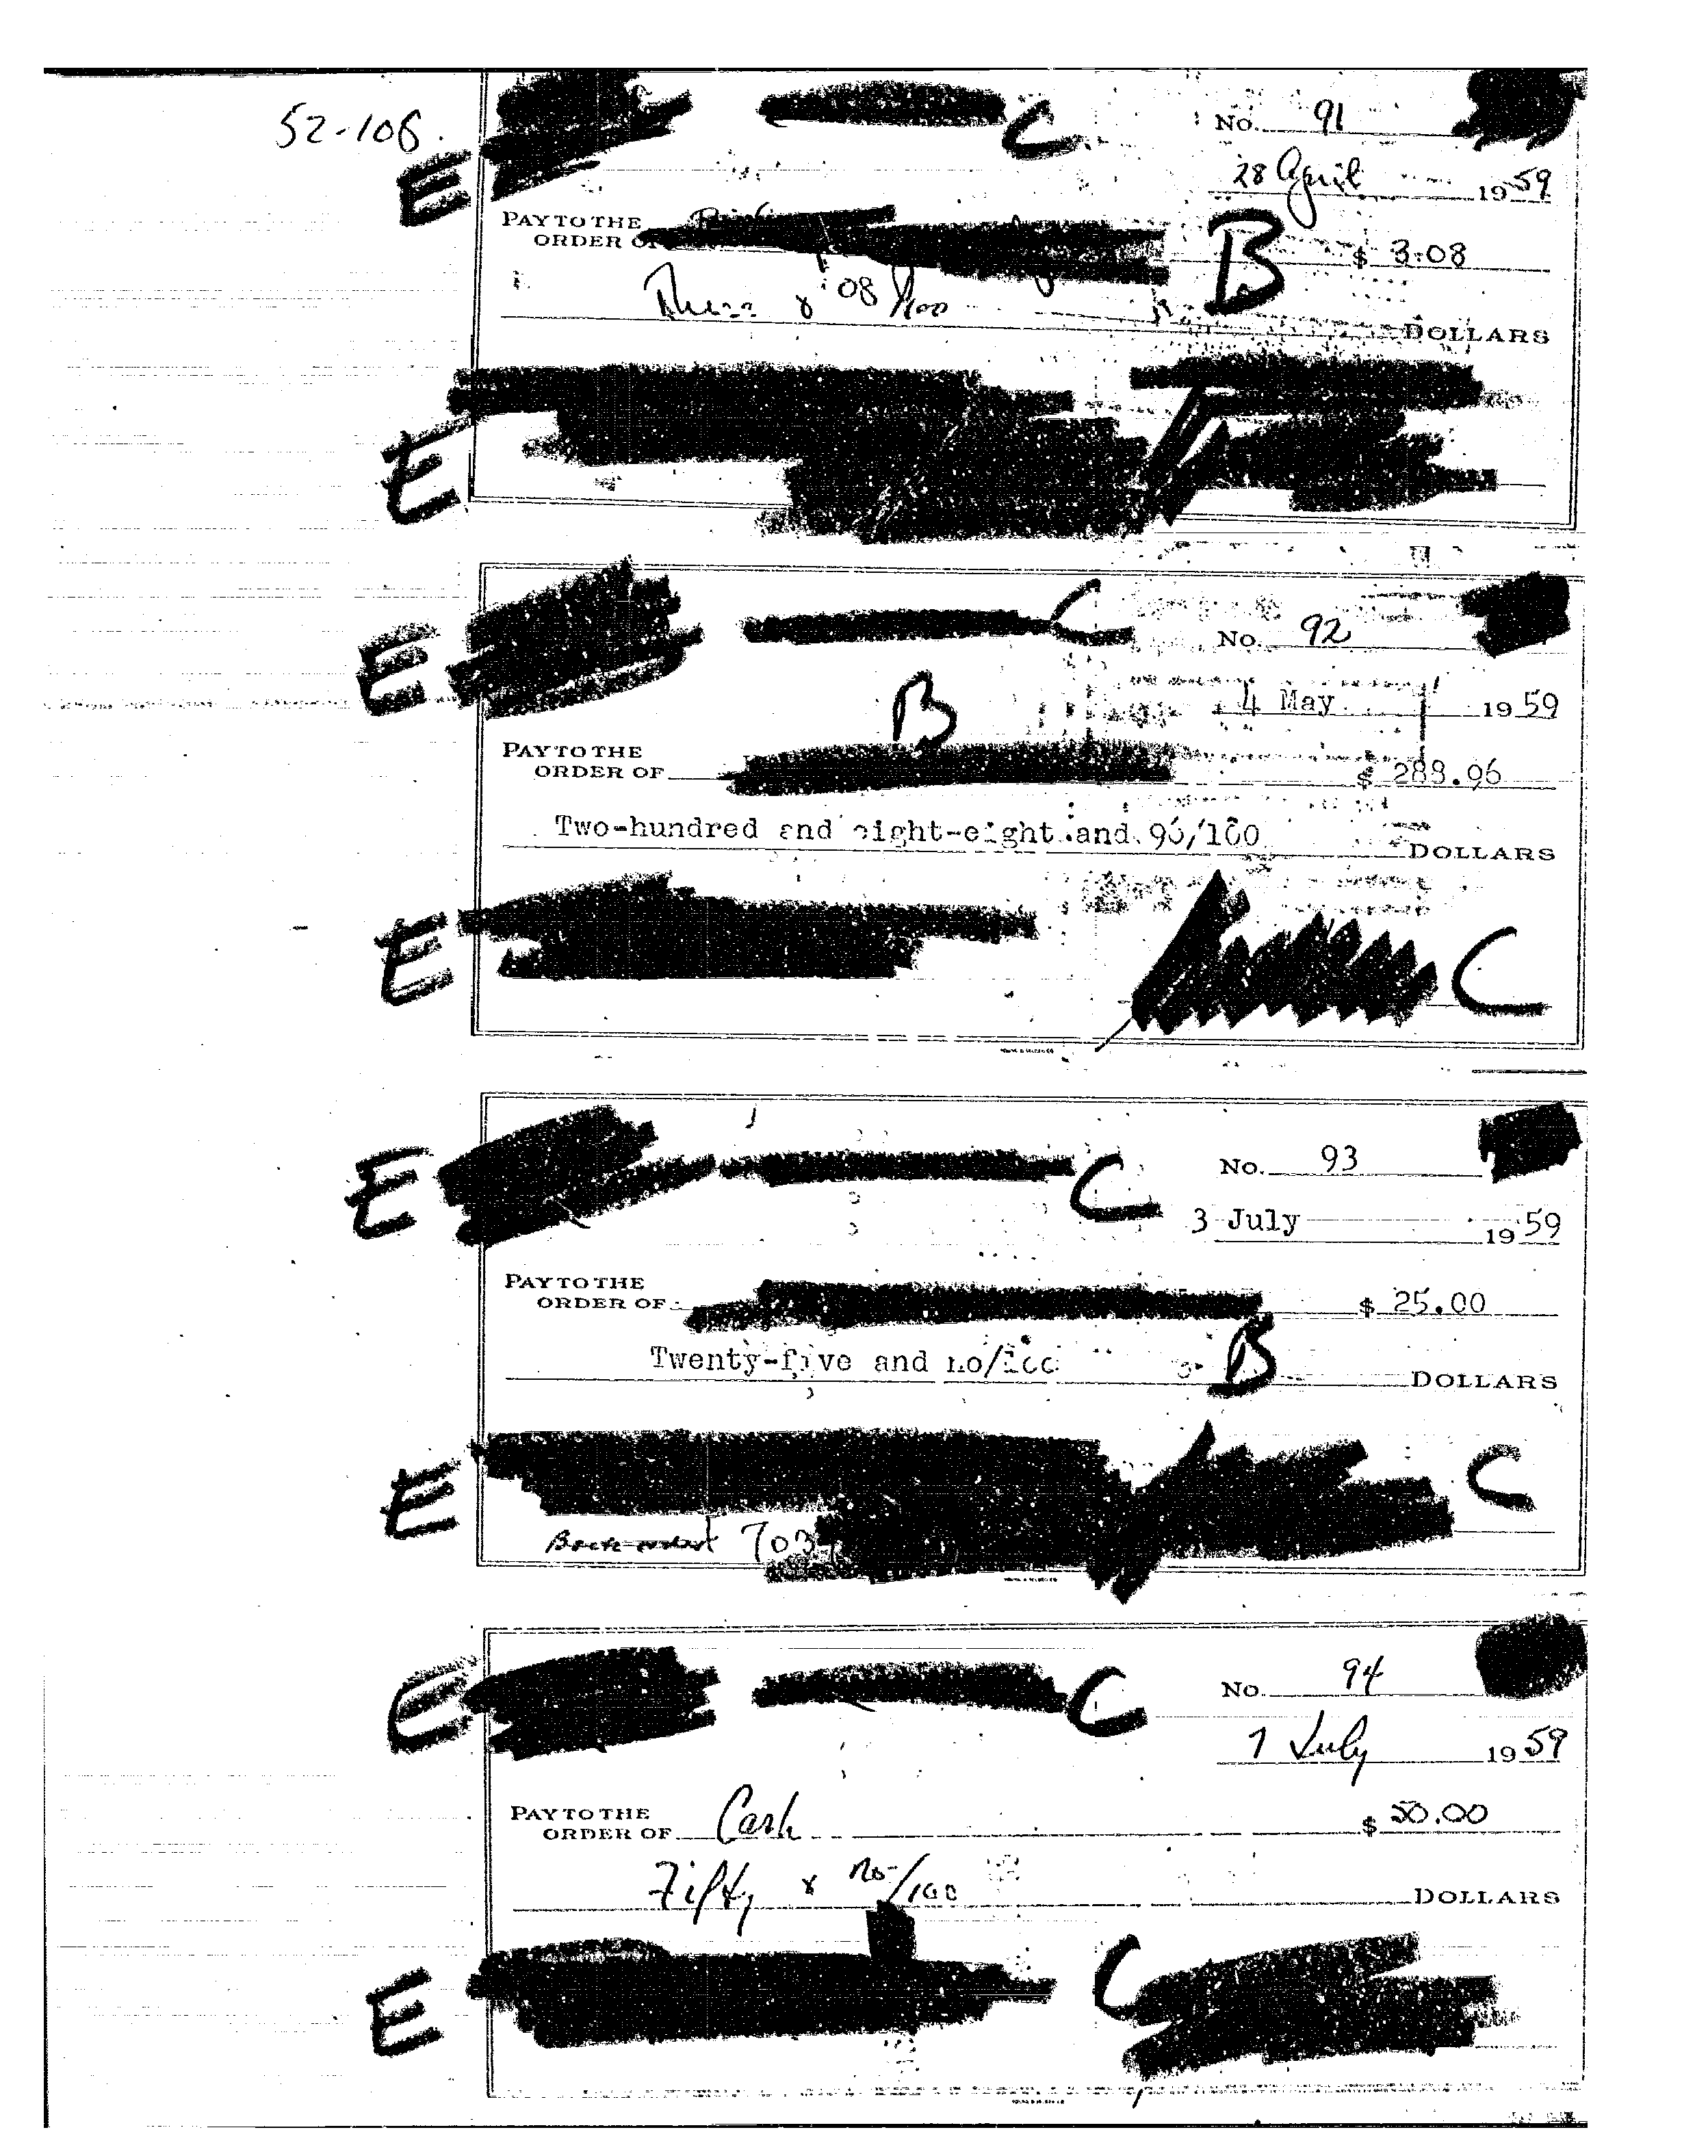 52-106.
C
No. 91
E
28 April 1959
PAY TO THE
ORDER OF B $ 3.08
Three & 08/100
DOLLARS
E
C
No. 92
E
B
4 May 1959
PAY TO THE
ORDER OF $ 288.96
Two-hundred and eight-eight and 96/100
DOLLARS
E
C
E
C
No. 93
3 July 1959
PAY TO THE
ORDER OF $ 25.00
Twenty-five and no/100
B
DOLLARS
E
C
703
E
C
No. 94
7 July 1959
PAY TO THE
ORDER OF Cash $ 50.00
Fifty & no/100
DOLLARS
E
C